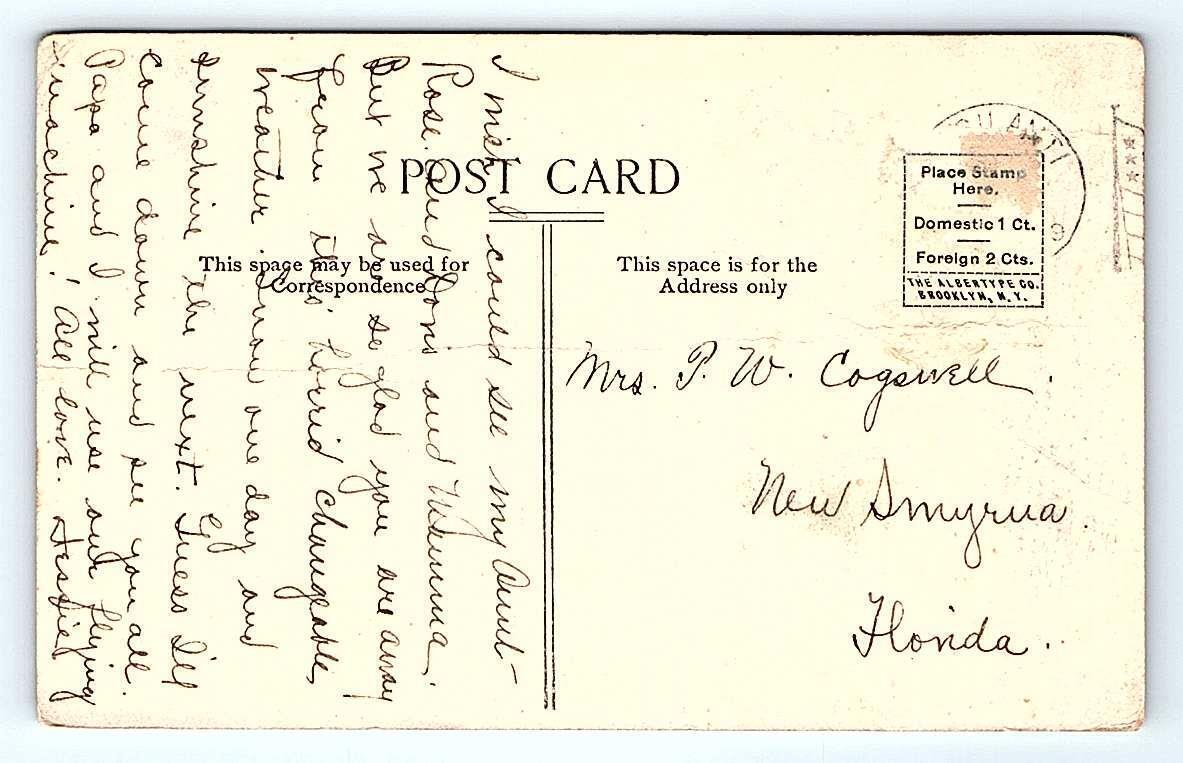 POST CARD
This space may be used for
Correspondence
This space is for the
Address only
Place Stamp
Here.
Domestic 1 Ct.
Foreign 2 Cts.
THE ALBERTYPE CO.
BROOKLYN, N.Y.
ANTI
9
I wish I could see my Aunt
Rose. and Doris and
But we are so glad you are away
from this horrid changeable,
weather. Snow one day and
sunshine the next. Guess I'll
come down and see you all.
Papa and I will use our flying
machine. ! All love.
Mrs. P. W. Cogswell.
New Smyrna.
Florida.